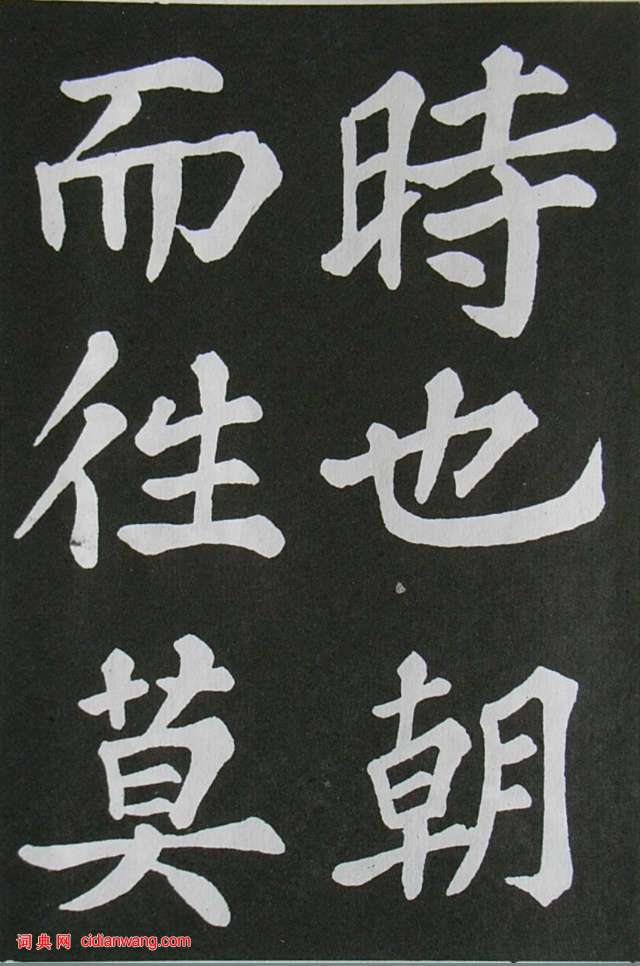 時也朝
而徃莫
词典网 cidianwang.com